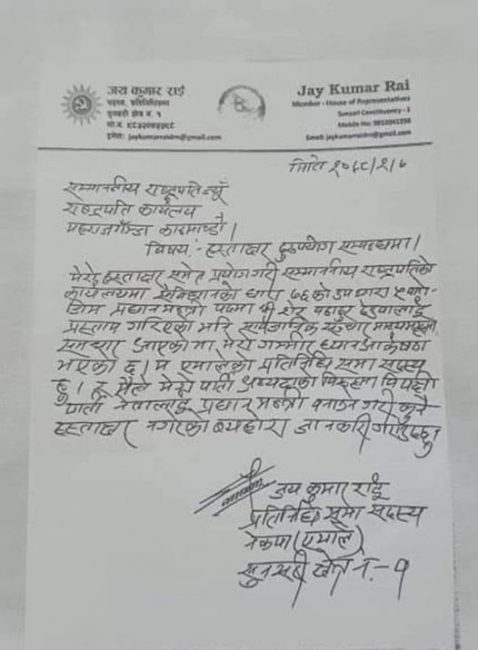 जय कुमार राई
सदस्य, प्रतिनिधिसभा
सुनसरी क्षेत्र नं. १
इमेल: jaykumarraidm@gmail.com
Jay Kumar Rai
Member - House of Representatives
Sunsari Constituency - 1
Mobile No: 9852045398
Email: jaykumarraidm@gmail.com
मिति २०७८/२/७
सम्माननीय राष्ट्रपतिज्यू
राष्ट्रपति कार्यालय
महाराजगंज काठमाण्डौ।
विषय:- हस्ताक्षर दुरुपयोग सम्बन्धमा।
मेरो हस्ताक्षर समेत प्रयोग गरी सम्माननीय राष्ट्रपतिको
कार्यालयमा संविधानको धारा ७६ को उपधारा ५ बमो-
जिम प्रधानमन्त्री पदमा श्री शेर बहादुर देउवालाई
प्रस्ताव गरिएको भनि सार्वजनिक सञ्चार माध्यममा
समाचार आएकोमा मेरो गम्भीर ध्यानआकर्षण
भएको छ। म एमालेको प्रतिनिधि सभा सदस्य
हुँ। र मैले मेरो पार्टी अध्यक्षका विरुद्धमा विपक्षी
पार्टी नेतालाई प्रधानमन्त्री बनाउने गरी कुनै
हस्ताक्षर नगरेको व्यहोरा जानकारी गराउँदछु
जय कुमार राई
प्रतिनिधि सभा सदस्य
नेकपा (एमाले)
सुनसरी क्षेत्र नं.-१